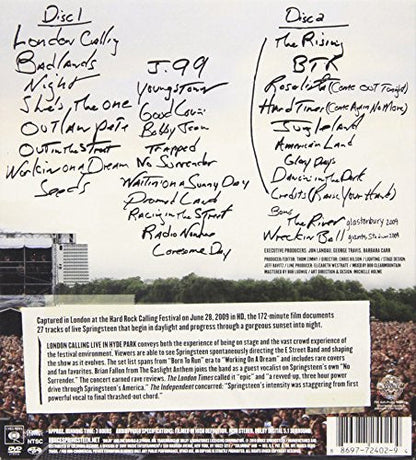 Disc 1
London Calling
Badlands
Night
She's The One
Outlaw Pete
Out in the Street
Workin on a Dream
Seeds
J. 99
Youngstown
Good Lovin
Bobby Jean
Trapped
No Surrender
Waitin on a Sunny Day
Promised Land
Racing in the Street
Radio Nowhere
Lonesome Day
Disc 2
The Rising
BTR
Rosalita (Come Out Tonight)
Hard Times (Come Again No More)
Jungleland
American Land
Glory Days
Dancing in the Dark
Credits (Raise Your Hand)
Bonus
The River glastonbury 2009
Wreckin Ball giants stadium 2009
EXECUTIVE PRODUCERS: JON LANDAU, GEORGE TRAVIS, BARBARA CARR
PRODUCER/EDITOR: THOM ZIMNY / DIRECTOR: CHRIS HILSON / LIGHTING / STAGE DESIGN:
JEFF RAVITZ / LINE PRODUCER: ELIZABETH WESTRATE / MIXED BY BOB CLEARMOUNTAIN
MASTERED BY BOB LUDWIG / ART DIRECTION & DESIGN: MICHELLE HOLME
Captured in London at the Hard Rock Calling Festival on June 28, 2009 in HD, the 172-minute film documents
27 tracks of live Springsteen that begin in daylight and progress through a gorgeous sunset into night.
LONDON CALLING LIVE IN HYDE PARK conveys both the experience of being on stage and the vast crowd experience of
the festival environment. Viewers are able to see Springsteen spontaneously directing the E Street Band and shaping
the show as it evolves. The set list spans from "Born To Run" era to "Working On A Dream" and includes rare covers
and fan favorites. Brian Fallon from The Gaslight Anthem joins the band as a guest vocalist on Springsteen's own "No
Surrender." The concert earned rave reviews. The London Times called it "epic" and "a revved-up, three hour power
drive through Springsteen's America." The Independent concurred: "Springsteen's intensity was staggering from first
powerful vocal to final thrashed-out chord."
NTSC
BRUCESPRINGSTEEN.NET
8 8697-72402-9